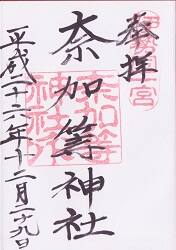 奉拝
伊勢国一宮
奈加等神社
奈加等
神社
平成二十六年十二月二十九日